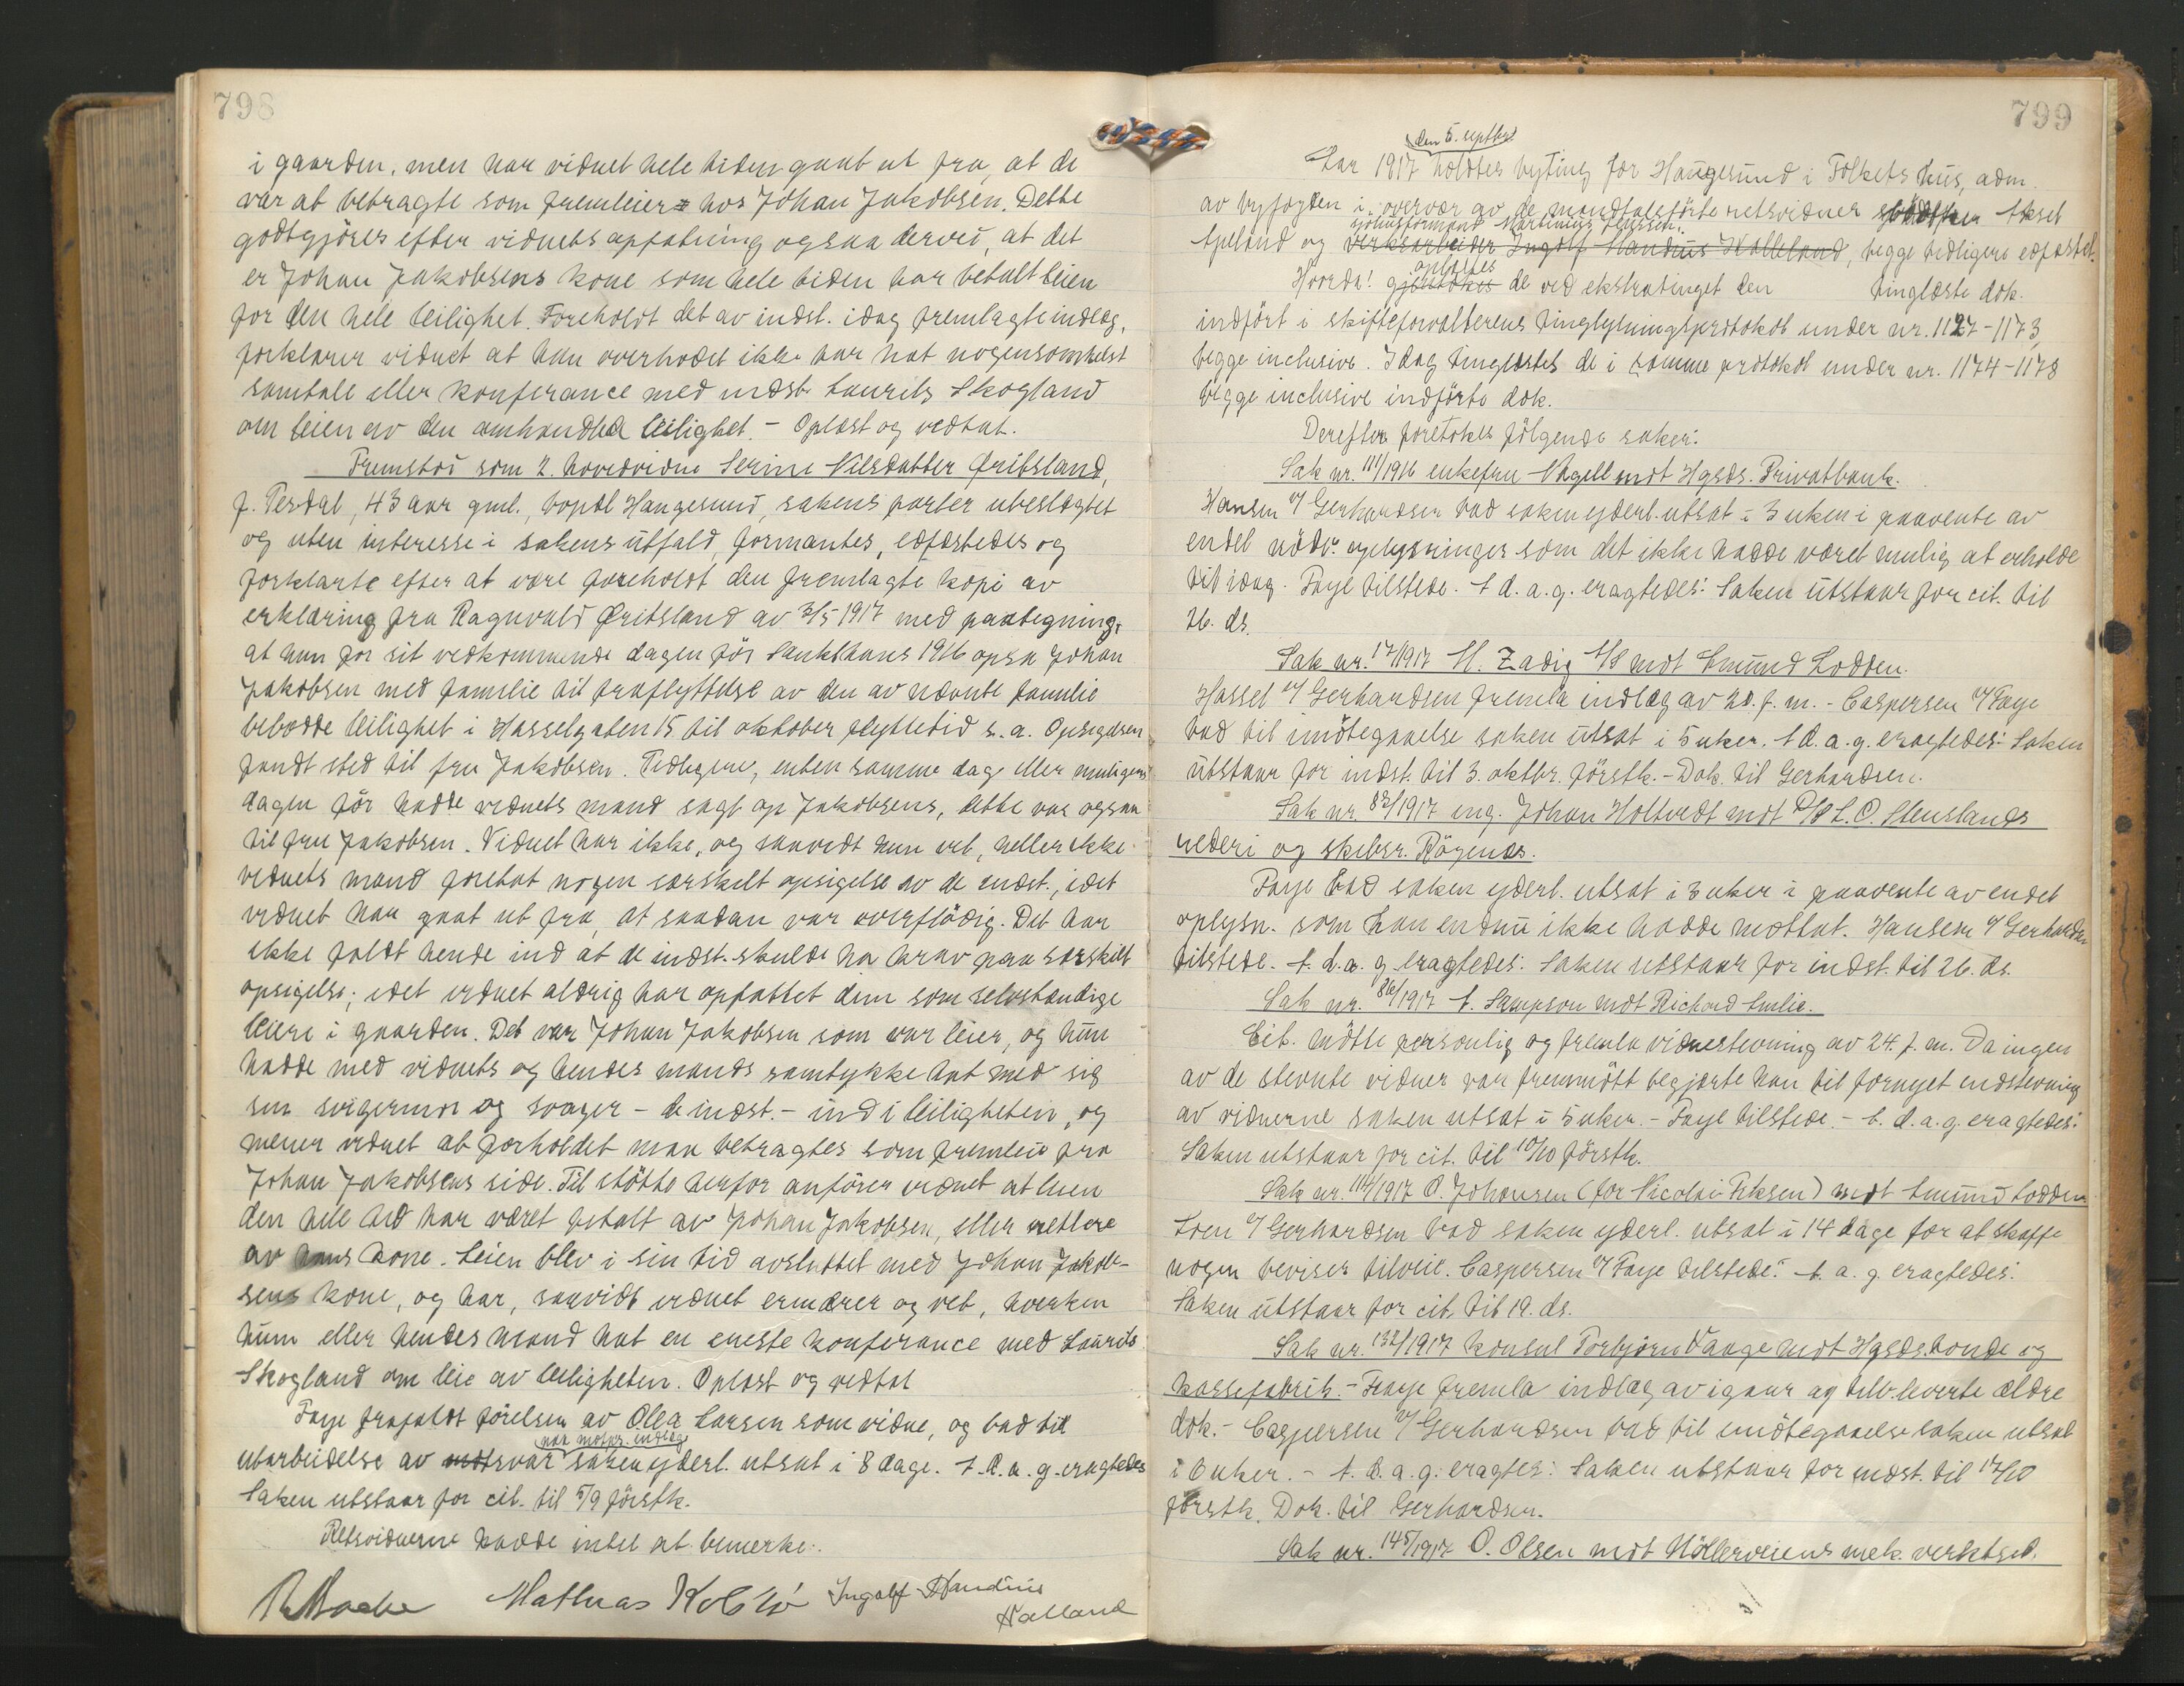 798
i gaarden, men har vidnet hele tiden gaat ut fra, at de
var at betragte som fremleiere hos Johan Jakobsen. Dette
godtgjøres efter vidnets opfatning ogsaa derved, at det
er Johan Jakobsens kone som hele tiden har betalt leien
for den hele leilighet. Foreholdt det av indst. idag fremlagte indlæg,
forklarer vidnet at han overhodet ikke har hat nogensomhelst
samtale eller konferance med indst. Laurits Skogland
om leien av den omhandlede leilighet. - Oplæst og vedtat.
Fremstod som 2. hovedvidne Serine Nilsdatter Øritsland,
f. Tesdal, 43 aar gml., bopæl Haugesund, sakens parter ubeslægtet
og uten interesse i sakens utfald, formantes, edfæstedes og
forklarte efter at være foreholdt den fremlagte kopi av
erklæring fra Ragnvald Øritsland av 3/5 1917 med paategning,
at hun for sit vedkommende dagen før Sankthans 1916 opsa Johan
Jakobsen med familie til fraflyttelse av den av nævnte familie
bebodde leilighet i Hasselgaten 15 til oktober flyttetid s.a. Opsigelsen
fandt sted til fru Jakobsen. Tidligere, enten samme dag eller muligens
dagen før hadde vidnets mand sagt op Jakobsens, dette var ogsaa
til fru Jakobsen. Vidnet har ikke, og saavidt hun vet, heller ikke
vidnets mand foretat nogen særskilt opsigelse av de indst., idet
vidnet har gaat ut fra, at saadan var overflødig. Det har
ikke faldt hende ind at de indst. skulde ha krav paa særskilt
opsigelse; idet vidnet aldrig har opfattet dem som selvstændige
leiere i gaarden. Det var Johan Jakobsen som var leier, og hun
hadde med vidnets og hendes mands samtykke hat med sig
sin svigermor og svoger - de indst. - ind i leiligheten, og
mener vidnet at forholdet maa betragtes som fremleie fra
Johan Jakobsens side. Til støtte herfor anfører vidnet at leien
den hele tid har været betalt av Johan Jakobsen, eller rettere
av hans kone. Leien blev i sin tid avsluttet med Johan Jakob-
sens kone, og har, saavidt vidnet erindrer og vet, hverken
hun eller hendes mand hat en eneste konferance med Laurits
Skogland om leie av leiligheten. Oplæst og vedtat
Faye frafaldt førelsen av Olea Larsen som vidne, og bad til
paa motpr. indlæg
utarbeidelse av motsvar saken yderl. utsat i 8 dage. t.d.a.g. eragtedes
Saken utstaar for cit. til 5/9 førstk.
Retsvidnerne hadde intet at bemerke.
Mathias Ingolf Handius
Halland
799
den 5. septbr
Aar 1917 holdtes byting for Haugesund i Folkets hus, adm.
av byfogden i overvær av de mandtalsførte retsvidner Aksel
formand Martinius
og verksarbeider Ingolf Handius Halleland, begge tidligere edfæstet.
oplæstes
Hvorda! de ved ekstratinget den tinglæste dok.
indført i skifteforvalterens tinglysningsprotokol under nr. 1127-1173,
begge inclusive. Idag tinglæstes de i samme protokol under nr. 1174-1178
begge inclusive indførte dok.
Derefter foretokes følgende saker:
Sak nr. 111/1916 enkefru Nagell mot Hgsds. Privatbank.
Hansen v/ Gerhardsen bad saken yderl. utsat i 3 uker i paavente av
endel nødv. oplysninger som det ikke hadde været mulig at erholde
til idag. Faye tilstede. t.d.a.g. eragtedes: Saken utstaar for cit. til
26. ds.
Sak nr. 17/1917 H. Zadig A/S mot Emund Lodden.
Hassel v/ Gerhardsen fremla indlæg av 20. f.m. - Caspersen v/ Faye
bad til imøtegaaelse saken utsat i 5 uker. t.d.a.g. eragtedes: Saken
utstaar for indst. til 3. oktbr. førstk. - Dok. til Gerhardsen.
Sak nr. 83/1917 ing. Johan Holtvedt mot D/S L.O. Stenslands
rederi og skibsr. Røgenæs.
Faye bad saken yderl. utsat i 3 uker i paavente av endel
oplysn. som han endnu ikke hadde mottat. Hansen v/ Gerhardsen
tilstede. t.d.a.g. eragtedes: Saken utstaar for indst. til 26. ds.
Sak nr. 86/1917 A. Sampson mot Richard Emilie.
Cit. møtte personlig og fremla vidnestevning av 24. f.m. Da ingen
av de stevnte vidner var fremmøtt begjærte han til fornyet indstevning
av vidnerne saken utsat i 5 uker. - Faye tilstede. - t.d.a.g. eragtedes:
Saken utstaar for cit. til 10/10 førstk.
Sak nr. 114/1917 O. Johansen (for Nicolai Eriksen) mot Emund Lodden
Loen v/ Gerhardsen bad saken yderl. utsat i 14 dage for at skaffe
nogen beviser tilveie. Caspersen v/ Faye tilstede. t.a.g. eragtedes:
Saken utstaar for cit. til 19. ds.
Sak nr. 132/1917 konsul Torbjørn Waage mot Hgsds. tønde og
kassefabrik. - Faye fremla indlæg av igaar og tilb.leverte ældre
dok. - Caspersen v/ Gerhardsen bad til imøtegaaelse saken utsat
i 6 uker. - t.d.a.g. eragtes: Saken utstaar for indst. til 17/10
førstk. Dok. til Gerhardsen.
Sak nr. 145/1917 O. Olsen mot Møllerveiens mek. verksted.